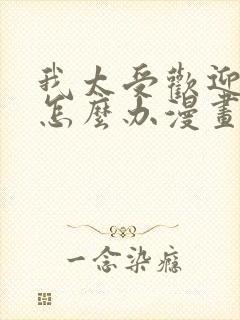 我太受歡迎
怎麼办漫畫
一念染癮